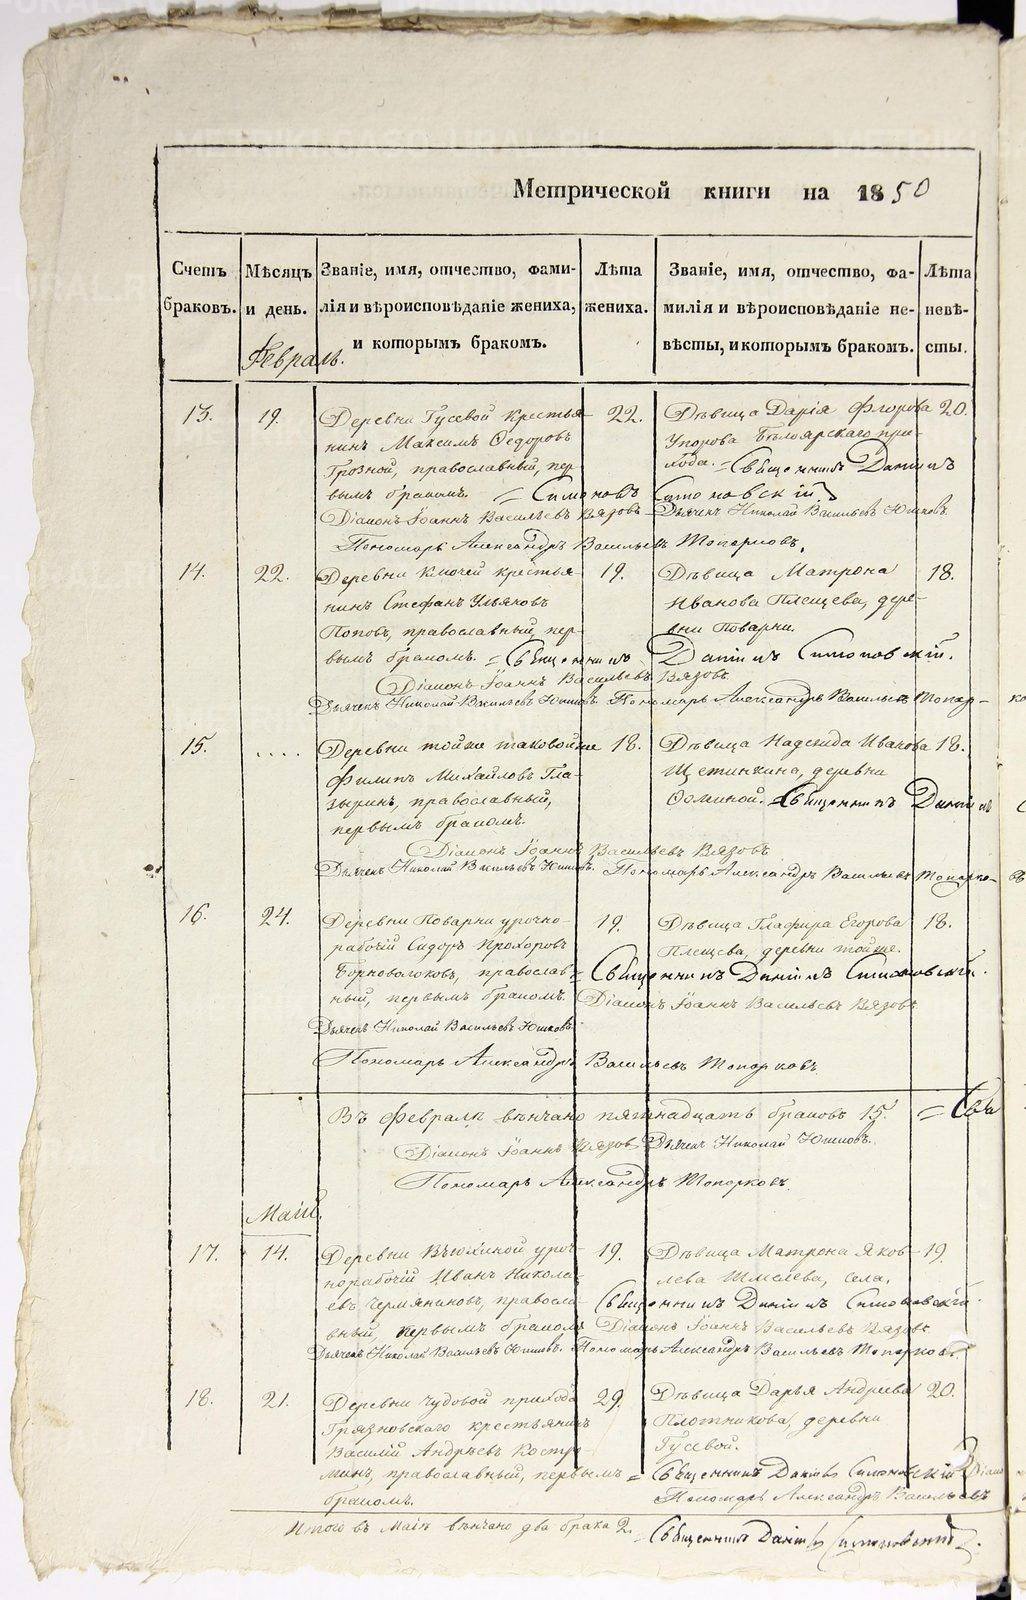 Метрической книги на 1850
Счетъ браковъ.
Мѣсяцъ и день.
Званіе, имя, отчество, фами-
лія и вѣроисповѣданіе жениха,
и которымъ бракомъ.
Лѣта жениха.
Званіе, имя, отчество, фа-
милія и вѣроисповѣданіе не-
вѣсты, и которымъ бракомъ.
Лѣта невѣ-
сты.
Февраль.
13. 19. Деревни Гусевой крестья- 22. Дѣвица Дарія Флорова 20.
нинъ Максимъ Ѳедоровъ Упорова Бѣлоярскаго при-
Грозной, православный, пер- хода. = Священникъ Даніилъ
вымъ бракомъ. = Симоновскій
Діаконъ Іоаннъ Васильевъ Вязовъ Дьячекъ Николай Васильевъ Юшковъ.
Пономарь Александръ Васильевъ Топорковъ.
14. 22. Деревни Ключей крестья- 19. Дѣвица Матрона 18.
нинъ Стефанъ Ульяновъ Иванова Плещева, дере-
Поповъ, православный, пер- вни Поварни.
вымъ бракомъ. = Священникъ Даніилъ Симоновскій.
Діаконъ Іоаннъ Васильевъ Вязовъ
Дьячекъ Николай Васильевъ Юшковъ. Пономарь Александръ Васильевъ Топор-
15. .... Деревни тойже таковойже 18. Дѣвица Надежда Иванова 18.
Филипъ Михайловъ Гла- Щетинкина, деревни
зыринъ, православный, = Священникъ Даніилъ
первымъ бракомъ.
Діаконъ Іоаннъ Васильевъ Вязовъ
Дьячекъ Николай Васильевъ Юшковъ. Пономарь Александръ Васильевъ Топорко-
16. 24. Деревни Поварни урочно- 19. Дѣвица Глафира Егорова 18.
рабочій Сидоръ Прохоровъ Плещева, деревни тойже.
Борноволоковъ, православ- = Священникъ Даніилъ Симоновскій.
ный, первымъ бракомъ. Діаконъ Іоаннъ Васильевъ Вязовъ
Дьячекъ Николай Васильевъ Юшковъ.
Пономарь Александръ Васильевъ Топорковъ.
Въ Февралѣ вѣнчано пятнадцать браковъ 15. = Свя
Діаконъ Іоаннъ Вязовъ Дьячекъ Николай Юшковъ.
Пономарь Александръ Топорковъ.
Маій.
17. 14. Деревни Вьюхиной уроч- 19. Дѣвица Матрона Яков- 19.
норабочій Иванъ Никола- лева Шмелева, села.
евъ Чермяниновъ, правосла- Священникъ Даніилъ Симоновскій.
вный, первымъ бракомъ Діаконъ Іоаннъ Васильевъ Вязовъ
Дьячекъ Николай Васильевъ Юшковъ. Пономарь Александръ Васильевъ Топорковъ.
18. 21. Деревни Чудовой прихода 29. Дѣвица Дарья Андреева 20.
Грязновскаго крестьянинъ Плотникова, деревни
Василій Андреевъ Костро- Гусевой.
минъ, православный, первымъ = Священникъ Даніилъ Симоновскій Діако
бракомъ. Пономарь Александръ Васильевъ
Итого въ Маіѣ вѣнчано два брака 2. = Священникъ Даніилъ Симоновскій.